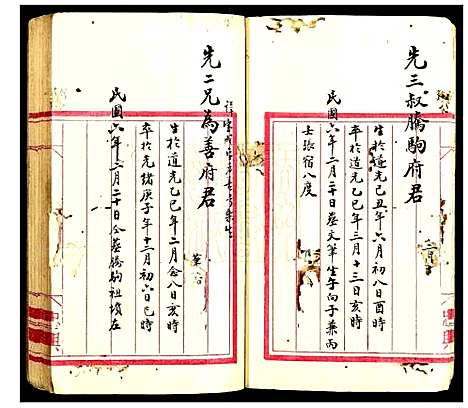 先三叔騰駒府君
生於道光己丑年六月初八日酉時
卒於道光乙巳年三月十三日亥時
民國六年二月二十日葬文筆生午向子兼丙
士張宿八度
先二兄為善府君
生於道光乙巳年二月念八日亥時
卒於光緒庚子年十二月初六日巳時
民國六年二月二十日合墓騰駒祖墳左